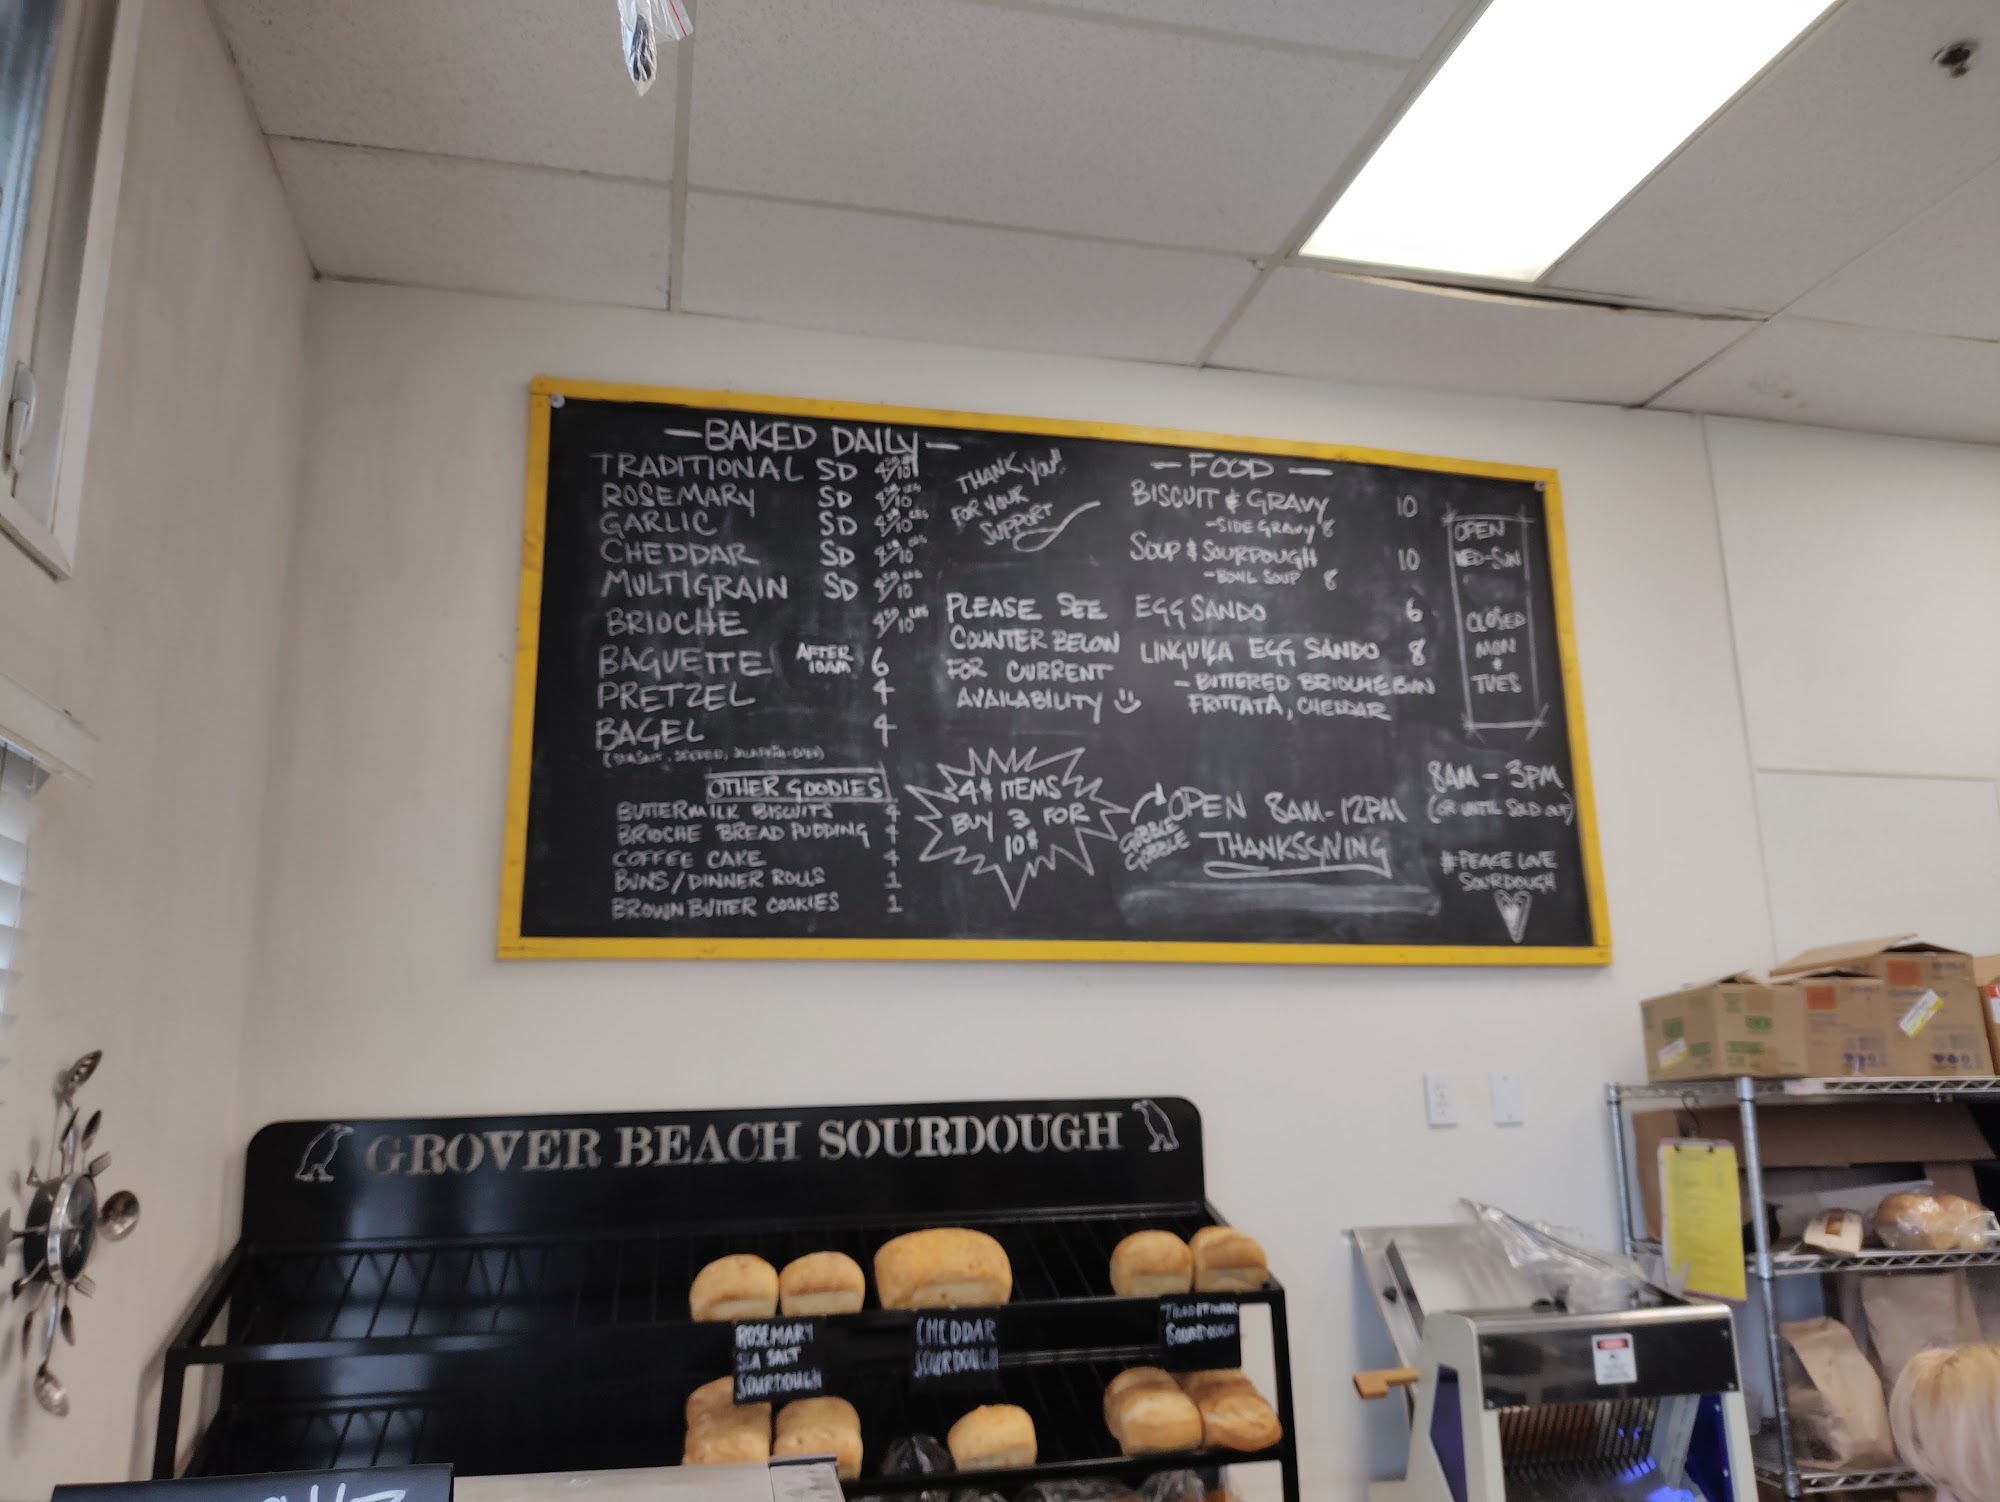 — BAKED DAILY —
TRADITIONAL SD 4.50/10 LRG
ROSEMARY SD 4.50/10 LRG
GARLIC SD 4.50/10 LRG
CHEDDAR SD 4.50/10 LRG
MULTIGRAIN SD 4.50/10 LRG
BRIOCHE 4.50/10 LRG
BAGUETTE AFTER 10AM 6
PRETZEL 4
BAGEL 4
OTHER GOODIES
BUTTERMILK BISCUITS 4
BRIOCHE BREAD PUDDING 4
COFFEE CAKE 4
BUNS/DINNER ROLLS 1
BROWN BUTTER COOKIES 1
THANK YOU!!
FOR YOUR
SUPPORT
PLEASE SEE
COUNTER BELOW
FOR CURRENT
AVAILABILITY
4$ ITEMS
BUY 3 FOR
10$
— FOOD —
BISCUIT & GRAVY 10
-SIDE GRAVY 8
SOUP & SOURDOUGH 10
-BOWL SOUP 8
EGG SANDO 6
LINGUIÇA EGG SANDO 8
- BUTTERED BRIOCHE BUN
FRITTATA, CHEDDAR
GOBBLE
GOBBLE
OPEN 8AM-12PM
THANKSGIVING
OPEN
WED-SUN
CLOSED
MON
&
TUES
8AM - 3PM
(OR UNTIL SOLD OUT)
#PEACE LOVE
SOURDOUGH
GROVER BEACH SOURDOUGH
ROSEMARY
SEA SALT
SOURDOUGH
CHEDDAR
SOURDOUGH
TRADITIONAL
SOURDOUGH